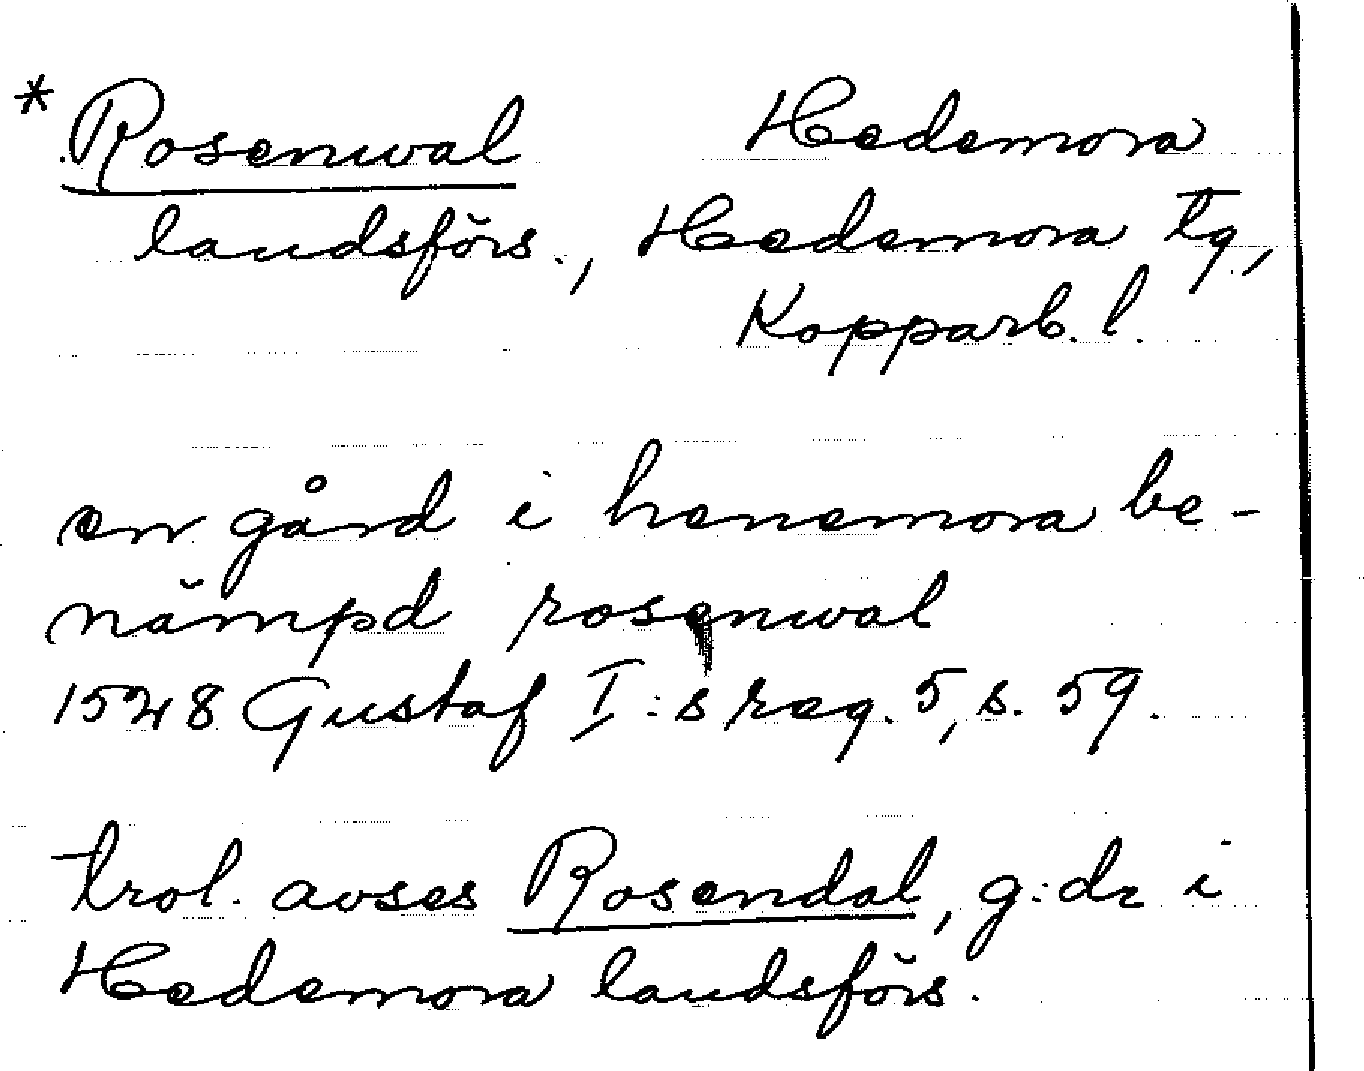 * Rosenwal Hedemora
landsförs., Hedemora tg,
Kopparb. l.
en gård i henemora be-
nämpd rosenwal
1548 Gustaf I:s reg. 5, s. 59.
trol. avses Rosendal, g:dr i
Hedemora landsförs.